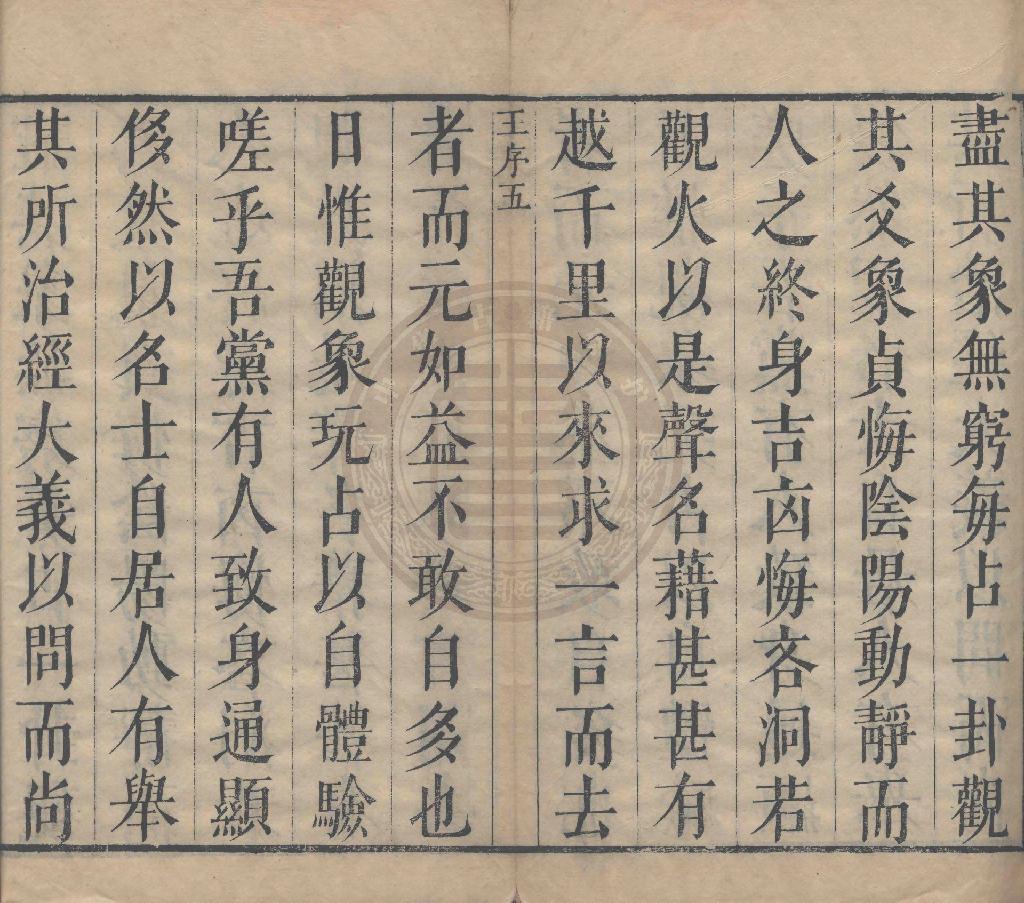 盡其象無窮每占一卦觀
其爻象貞悔陰陽動靜而
人之終身吉凶悔吝洞若
觀火以是聲名藉甚甚有
越千里以來求一言而去
王序五
者而元如益不敢自多也
日惟觀象玩占以自體驗
嗟乎吾黨有人致身通顯
侈然以名士自居人有舉
其所治經大義以問而尚